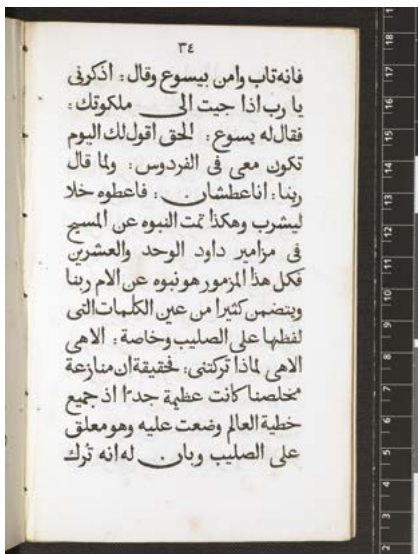 ٣٤
فانه تاب وامن بيسوع وقال: اذكرنى
يا رب اذا جيت الى ملكوتك:
فقال له يسوع: الحق اقول لك اليوم
تكون معى فى الفردوس: ولما قال
ربنا: انا عطشان: فاعطوه خلا
ليشرب وهكذا تمت النبوه عن المسيح
فى مزامير داود الوحد والعشرين
فكل هذا المزمور هو نبوه عن الام ربنا
ويتضمن كثيرا من عين الكلمات التى
لفظها على الصليب وخاصة: الاهى
الاهى لماذا تركتنى: فحقيقة ان منازعة
مخلصنا كانت عظيمة جدًا اذ جميع
خطية العالم وضعت عليه وهو معلق
على الصليب وبان له انه تُرك
18
17
16
15
14
13
12
11
10
9
8
7
6
5
4
3
2